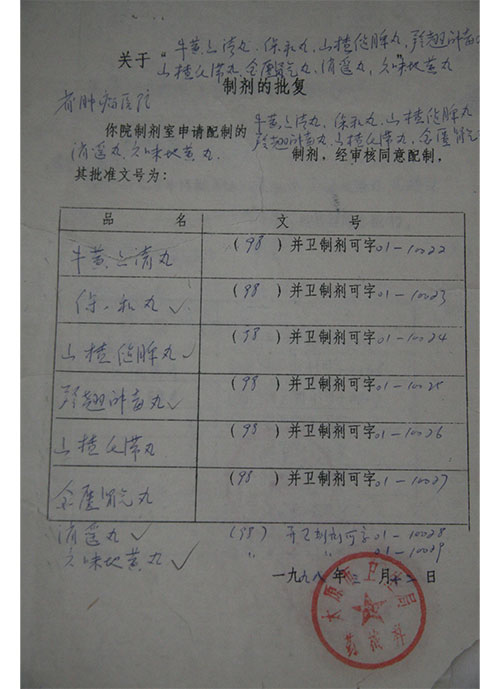 牛黄上清丸、保和丸、山楂健脾丸、羚翘解毒丸
关于“山楂化滞丸、金匮肾气丸、消遥丸、六味地黄丸
制剂的批复
省肿瘤医院
牛黄上清丸、保和丸、山楂健脾丸
你院制剂室申请配制的 羚翘解毒丸、山楂化滞丸、金匮肾气
消遥丸、六味地黄丸. 制剂，经审核同意配制，
其批准文号为：
品 名 文 号
牛黄上清丸 (98) 并卫制剂可字01-10022
保和丸 ✓ (98) 并卫制剂可字01-10023
山楂健脾丸 ✓ (98) 并卫制剂可字01-10024
羚翘解毒丸 ✓ (98) 并卫制剂可字01-10025
山楂化滞丸 (98) 并卫制剂可字01-10026
金匮肾气丸 (98) 并卫制剂可字01-10027
消遥丸 ✓ (98) 并卫制剂可字01-10028
六味地黄丸 ✓ " " 01-10029
一九九八年三月十二日
太原市卫生局
药政科